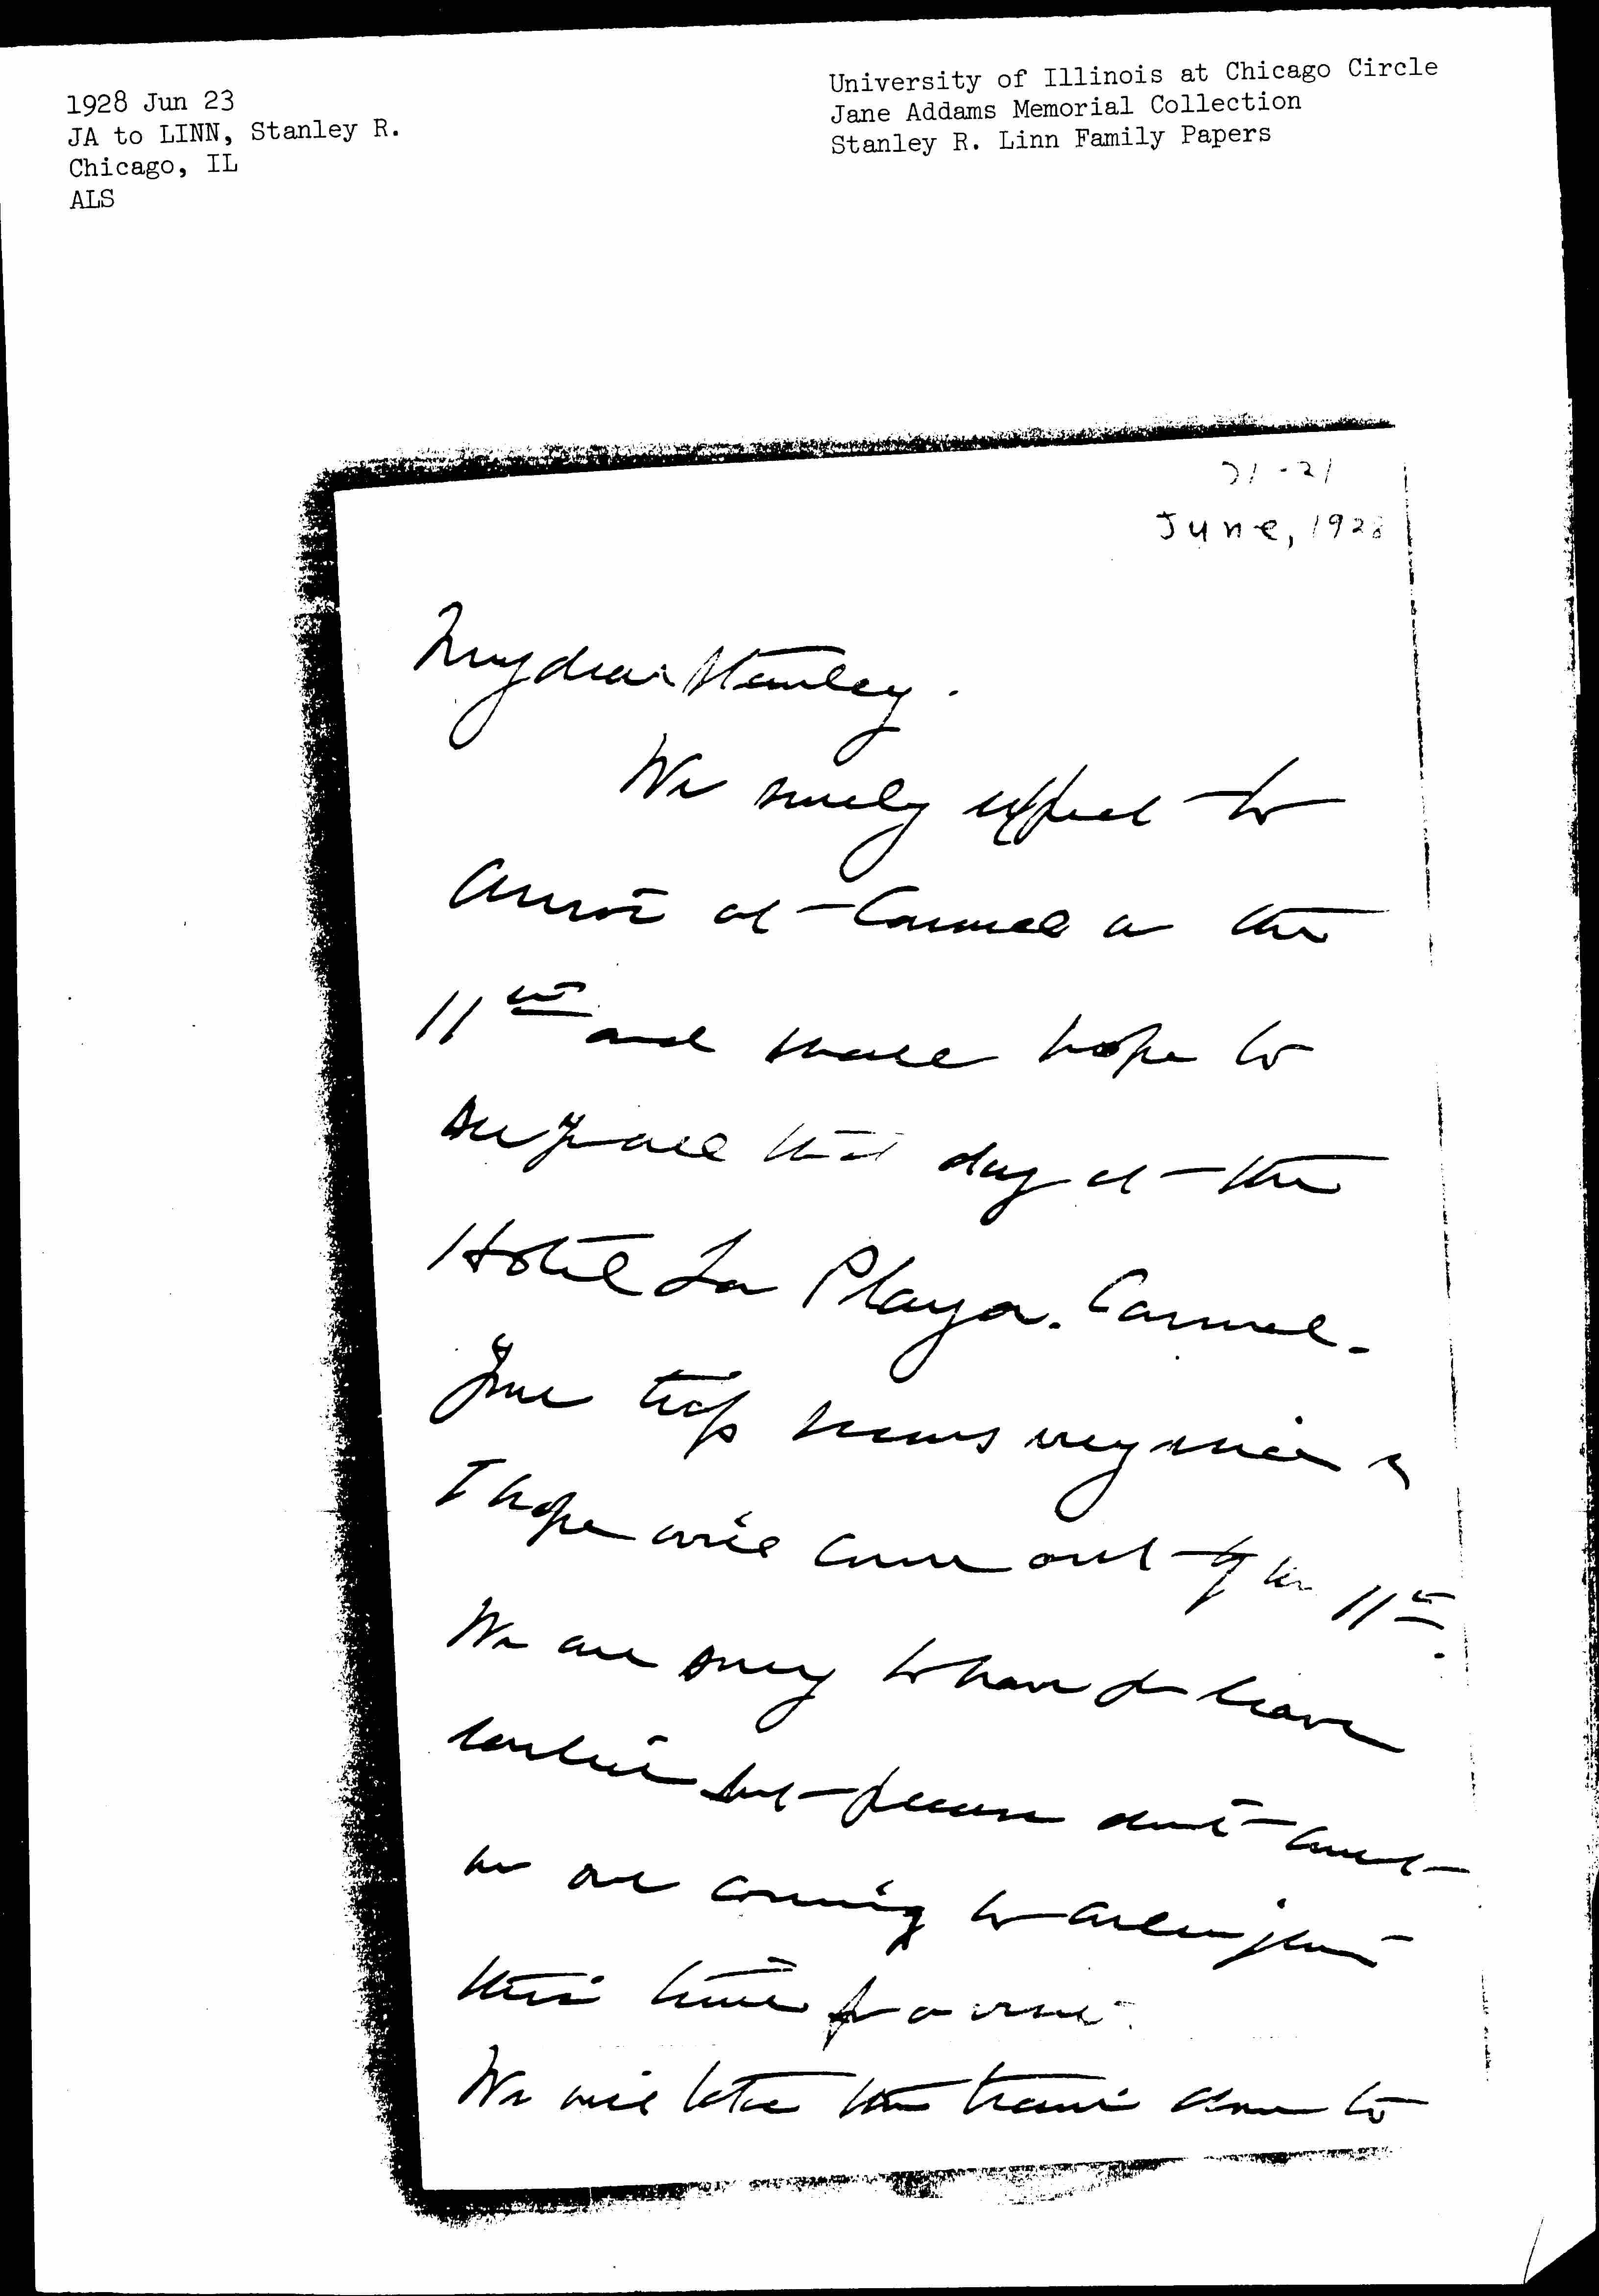 1928 Jun 23
JA to LINN, Stanley R.
Chicago, IL
ALS
University of Illinois at Chicago Circle
Jane Addams Memorial Collection
Stanley R. Linn Family Papers
21-21
June, 1928
My dear Stanley.
We surely expect to
arrive at Carmel on the
11th and shall hope to
see you all that day at the
Hotel La Playa. Carmel.
Your trip seems very nice &
I hope will come out by the 11th.
We are sorry to have to leave
earlier but please don't
we are coming to just
this time for a visit.
We will take the train down to